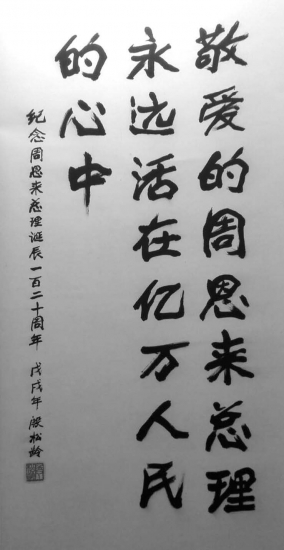 敬爱的周恩来总理
永远活在亿万人民
的心中
纪念周恩来总理诞辰一百二十周年 戊戌年 殷松龄